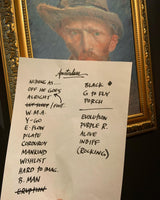 Amsterdam
HIDING AS...
OFF HE GOES
ALRIGHT
W.M.A.
Y-GO
E. FLOW
PILATE
CORDUROY
MANKIND
WISHLIST
HARD TO IMAG.
B. MAN
ERUPTION
BLACK
G TO FLY
PORCH
EVOLUTION
PURPLE R.
ALIVE
INDIFF
(ROCKING)